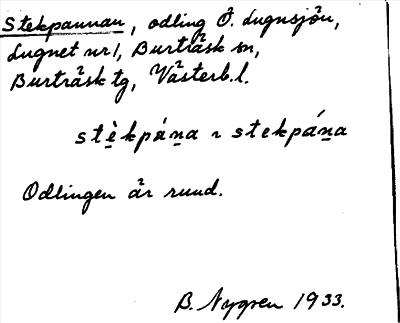 Stekpannan, odling Ö. Lugnsjön,
Lugnet nr 1, Burträsk sn,
Burträsk tg, Västerb. l.
stè̱kpána̱ ~ stekpána̱
Odlingen är rund.
B. Nygren 1933.